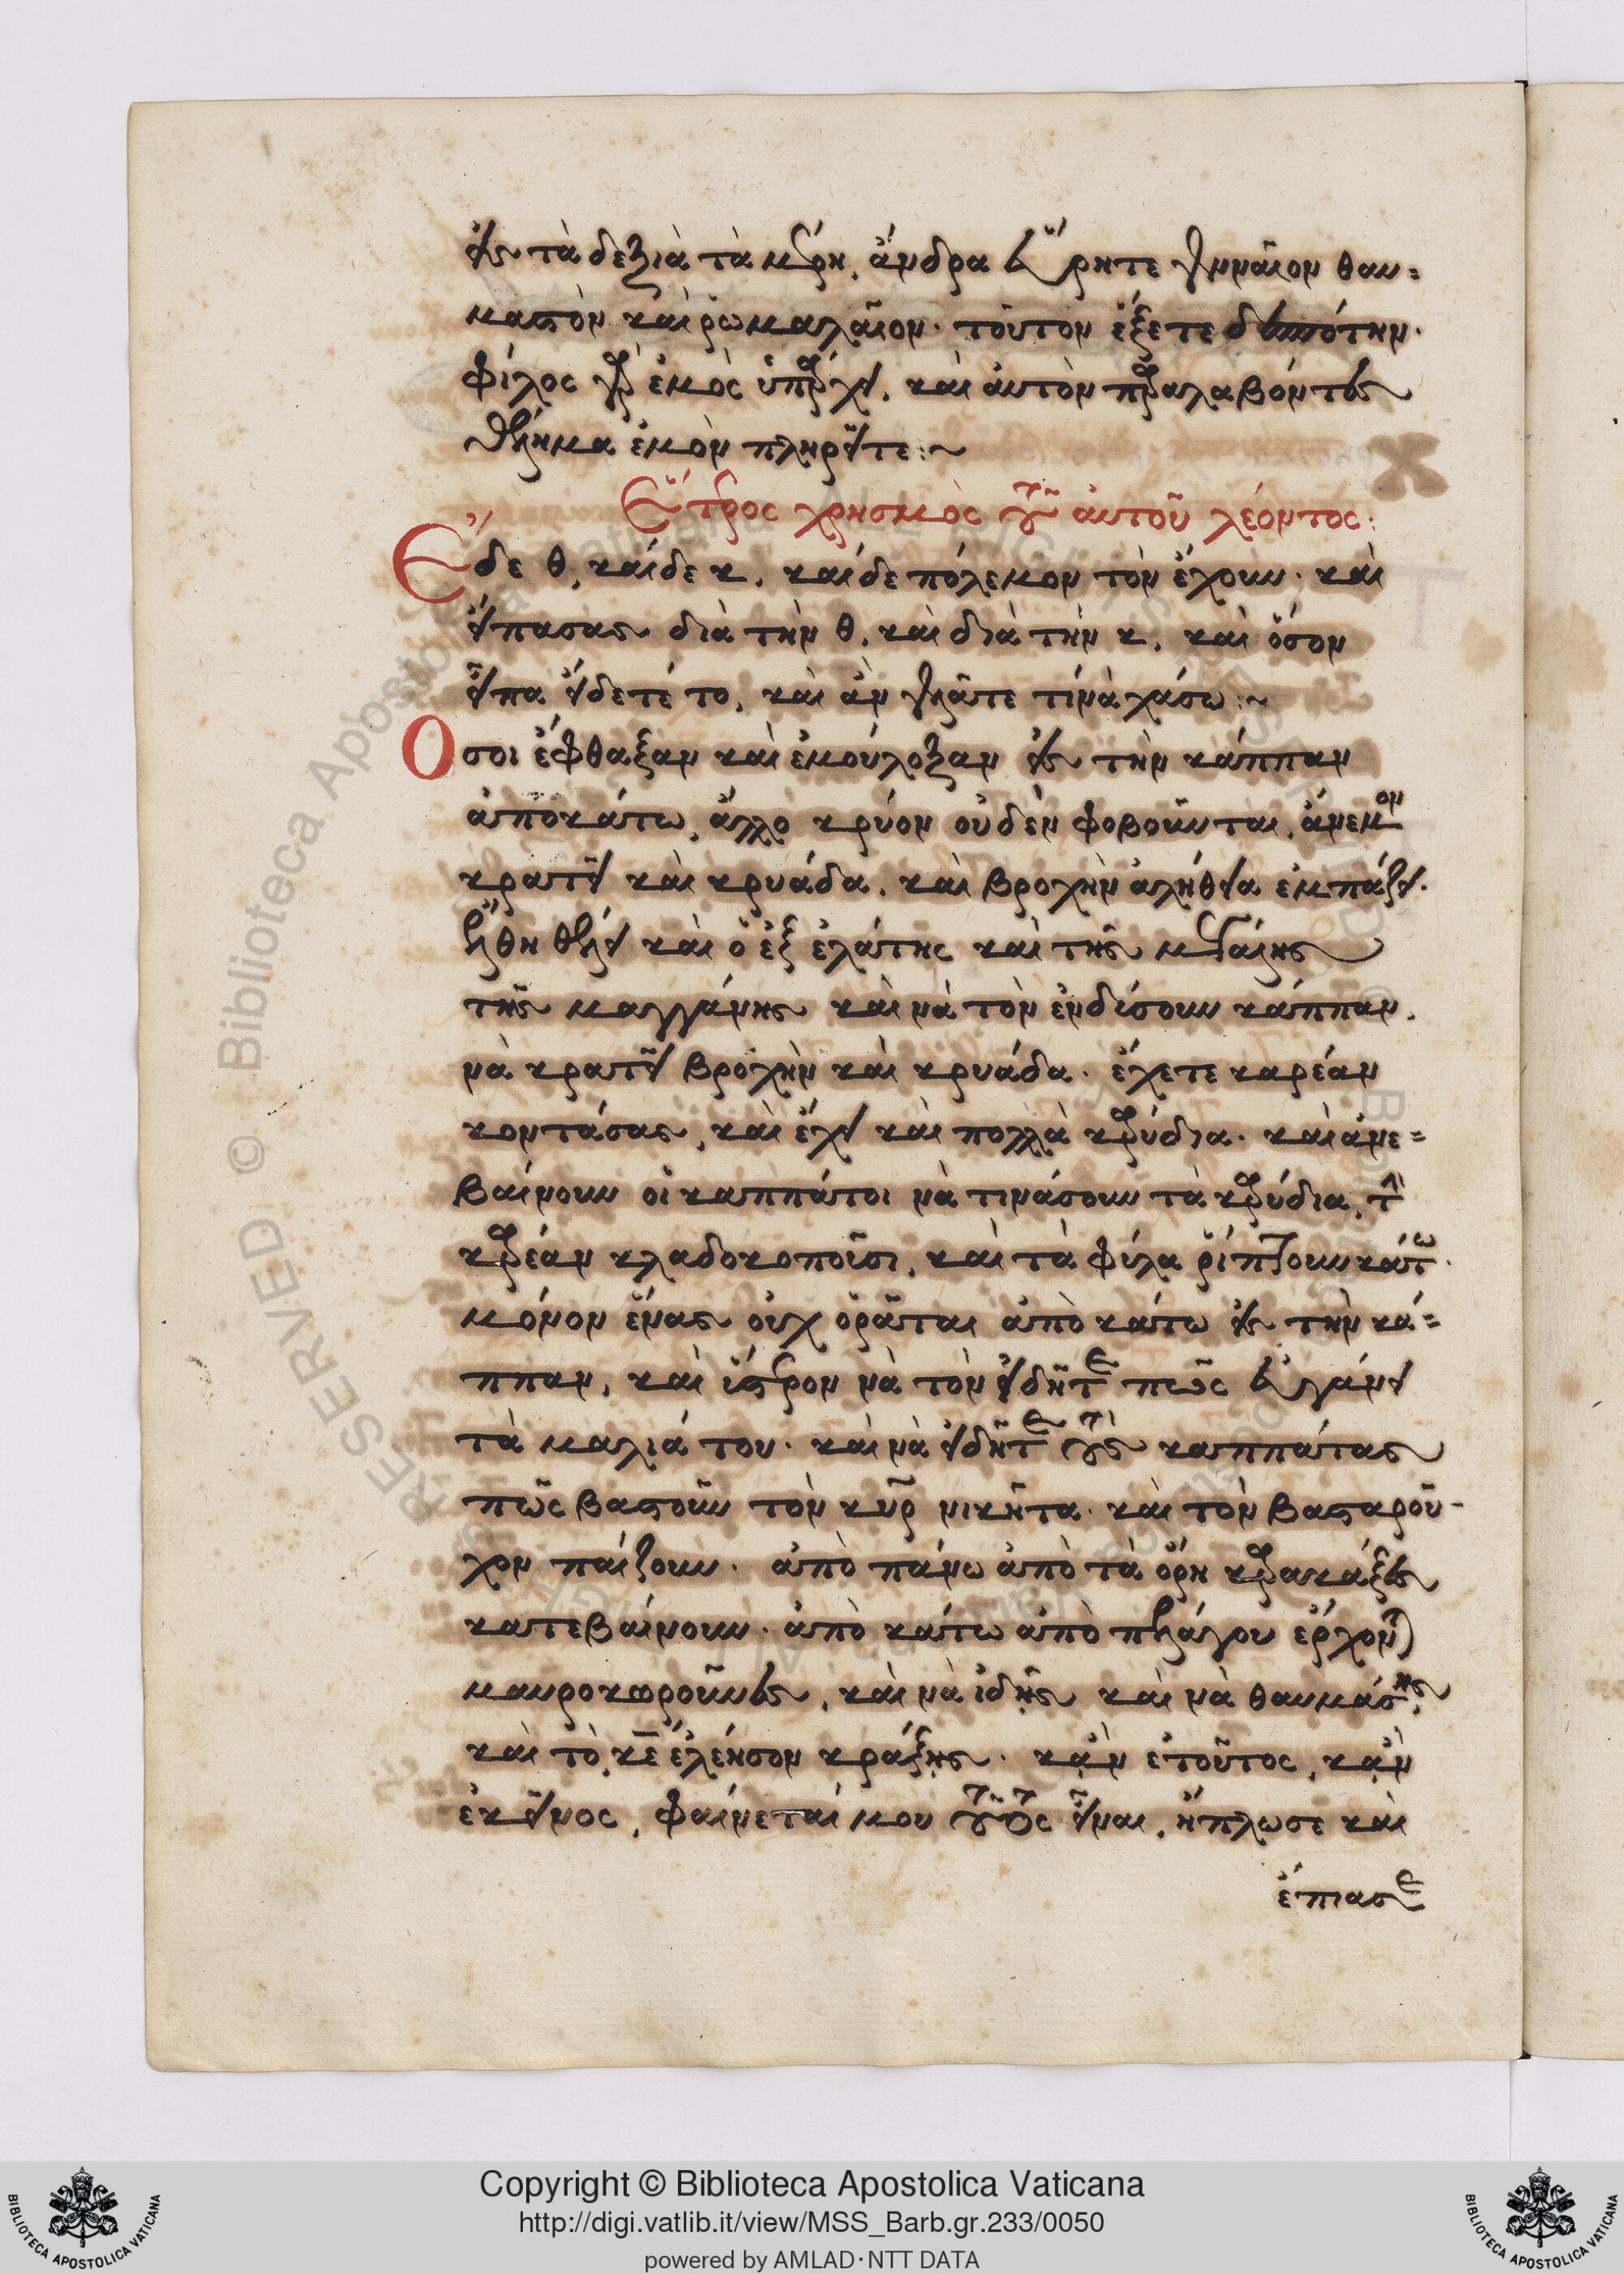 εἰς τὰ δεξιὰ τὰ μέρη, ἄνδρα εὕρητε γενναῖον θαυ=
μαστὸν καὶ ῥωμαλαῖον· τοῦτον ἕξετε δεσπότην·
φίλος γὰρ ἐμὸς ὑπάρχει, καὶ αὐτὸν παραλαβόντες
θέλημα ἐμὸν πληρεῖτε:~
Ἕτερος χρησμὸς τοῦ αὐτοῦ λέοντος:
Ἔδε θ, καί δε κ, καί δε πόλεμον τὸν ἔχουν· καὶ
εἴπασας διὰ τὴν θ, καὶ διὰ τὴν κ, καὶ ὅσον
εἶπα εἴδετέ το, καὶ ἂν γελᾶτε τίνα χάσω:~
Ὅσοι ἔφθαξαν καὶ ἐμούλοξαν εἰς τὴν κάππαν
ἀποκάτω, ἄλλο κρύον οὐδὲν φοβοῦνται, ἄνεμον
κρατεῖ καὶ κρυάδα, καὶ βροχὴν ἀλήθεια ἐμπάζει.
καὶ ὁ ἐξ ἐλάτης καὶ τῆς μεγάλης
τῆς μαγγάνης καὶ νὰ τὸν ἐνδύσουν κάππαν,
νὰ κρατεῖ βροχὴν καὶ κρυάδα· ἔχετε καρέαν
κοντάσας, καὶ ἔχει καὶ πολλὰ καρύδια· καὶ ἀνε=
βαίνουν οἱ καππάτοι νὰ τινάσουν τὰ καρύδια, τὴν
καρέαν κλαδοκοποῦσι, καὶ τὰ φύλα ῥίπτουν κάτω·
μόνον ἕνας οὐχ ὁρᾶται ἀπὸ κάτω εἰς τὴν κά=
ππαν, καὶ ὕστερον νὰ τὸν εἰδῆτε πῶς εὐγάνει
τὰ μαλιά του· καὶ νὰ εἰδῆτε τοὺς καππάτας
πῶς βαστοῦν τὸν κῦρ νικῆτα· καὶ τὸν βασταροῦ-
χον παίζουν· ἀπὸ πάνω ἀπὸ τὰ ὄρη καρακάξες
κατεβαίνουν· ἀπὸ κάτω ἀπὸ πελάγου ἔρχονται
μαυροκοροῦνες, καὶ νὰ ἰδῆς καὶ νὰ θαυμάσης,
καὶ τὸ, κε ἐλέησον κράξης· κἂν ἐτοῦτος, κἂν
ἐκεῖνος, φαίνεταί μου τοῦτος εἶναι, ἥπλωσε καὶ
ἔπιασε
Copyright © Biblioteca Apostolica Vaticana
http://digi.vatlib.it/view/MSS_Barb.gr.233/0050
powered by AMLAD·NTT DATA
BIBLIOTECA APOSTOLICA VATICANA
BIBLIOTECA APOSTOLICA VATICANA